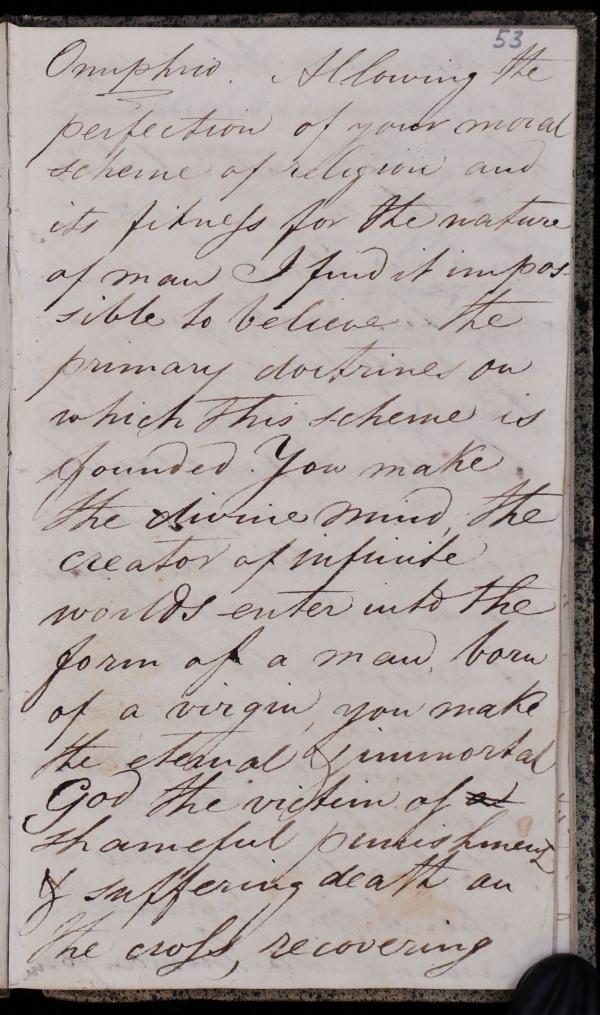 53
Onuphrio. Allowing the
perfection of your moral
scheme of religion and
its fitness for the nature
of man I find it impos-
sible to believe the
primary doctrines on
which this scheme is
founded. You make
the divine mind, the
creator of infinite
worlds enter into the
form of a man, born
of a virgin, you make
the eternal & immortal
God the victim of a
shameful punishment
& suffering death on
the cross, recovering